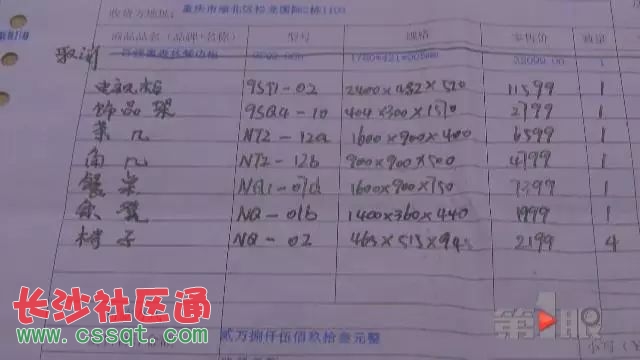 收货方地址： 重庆市渝北区松龙国际2栋1103
商品品名（品牌+名称） 型号 规格 零售价 数量
取消 1
电视柜 9ST1-02 2400×482×520 11599 1
饰品架 9SQ4-10 404×300×1570 2799 1
茶几 NT2-12a 1600×900×400 6599 1
角几 NT2-12b 900×900×500 4799 1
餐桌 NQ1-01a 1600×900×750 7399 1
条凳 NQ-01b 1400×360×440 1999 1
椅子 NQ-02 465×515×94 2199 4
贰万捌仟伍佰玖拾叁元整
小写（
长沙社区通
www.cssqt.com
第1眼